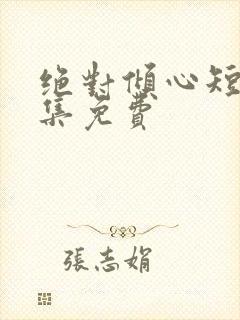 絕對傾心短
集免費
張志娟